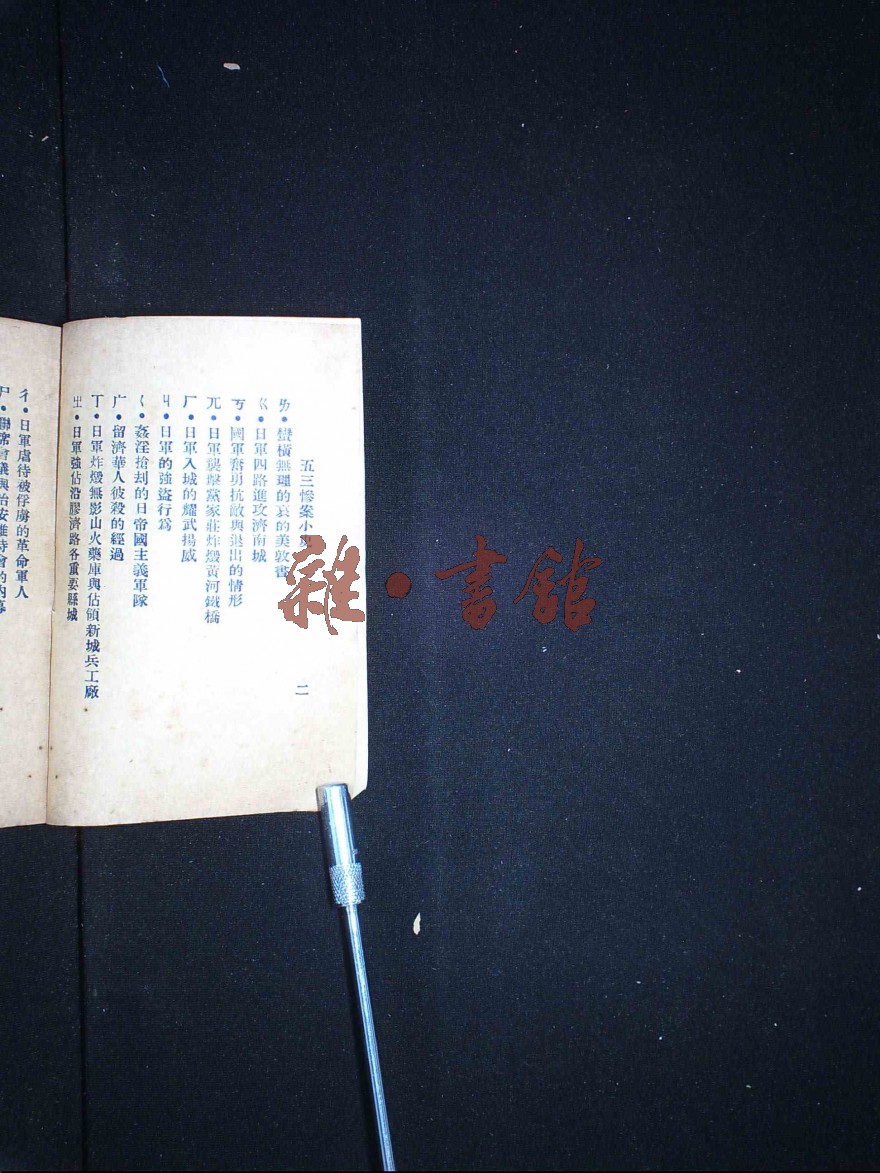 五三慘案小
二
ㄌ・蠻橫無理的哀的美敦書
ㄍ・日軍四路進攻濟南城
ㄎ・國軍奮勇抗敵與退出的情形
ㄫ・日軍襲擊黨家莊炸燬黃河鐵橋
ㄏ・日軍入城的耀武揚威
ㄐ・日軍的強盜行爲
ㄑ・姦淫搶刦的日帝國主義軍隊
ㄬ・留濟華人彼殺的經過
ㄒ・日軍炸燬無影山火藥庫與佔領新城兵工廠
ㄓ・日軍強佔沿膠濟路各重要縣城
ㄔ・日軍虐待被俘虜的革命軍人
ㄕ・聯席會議與治安維持會的內幕
雜・書館